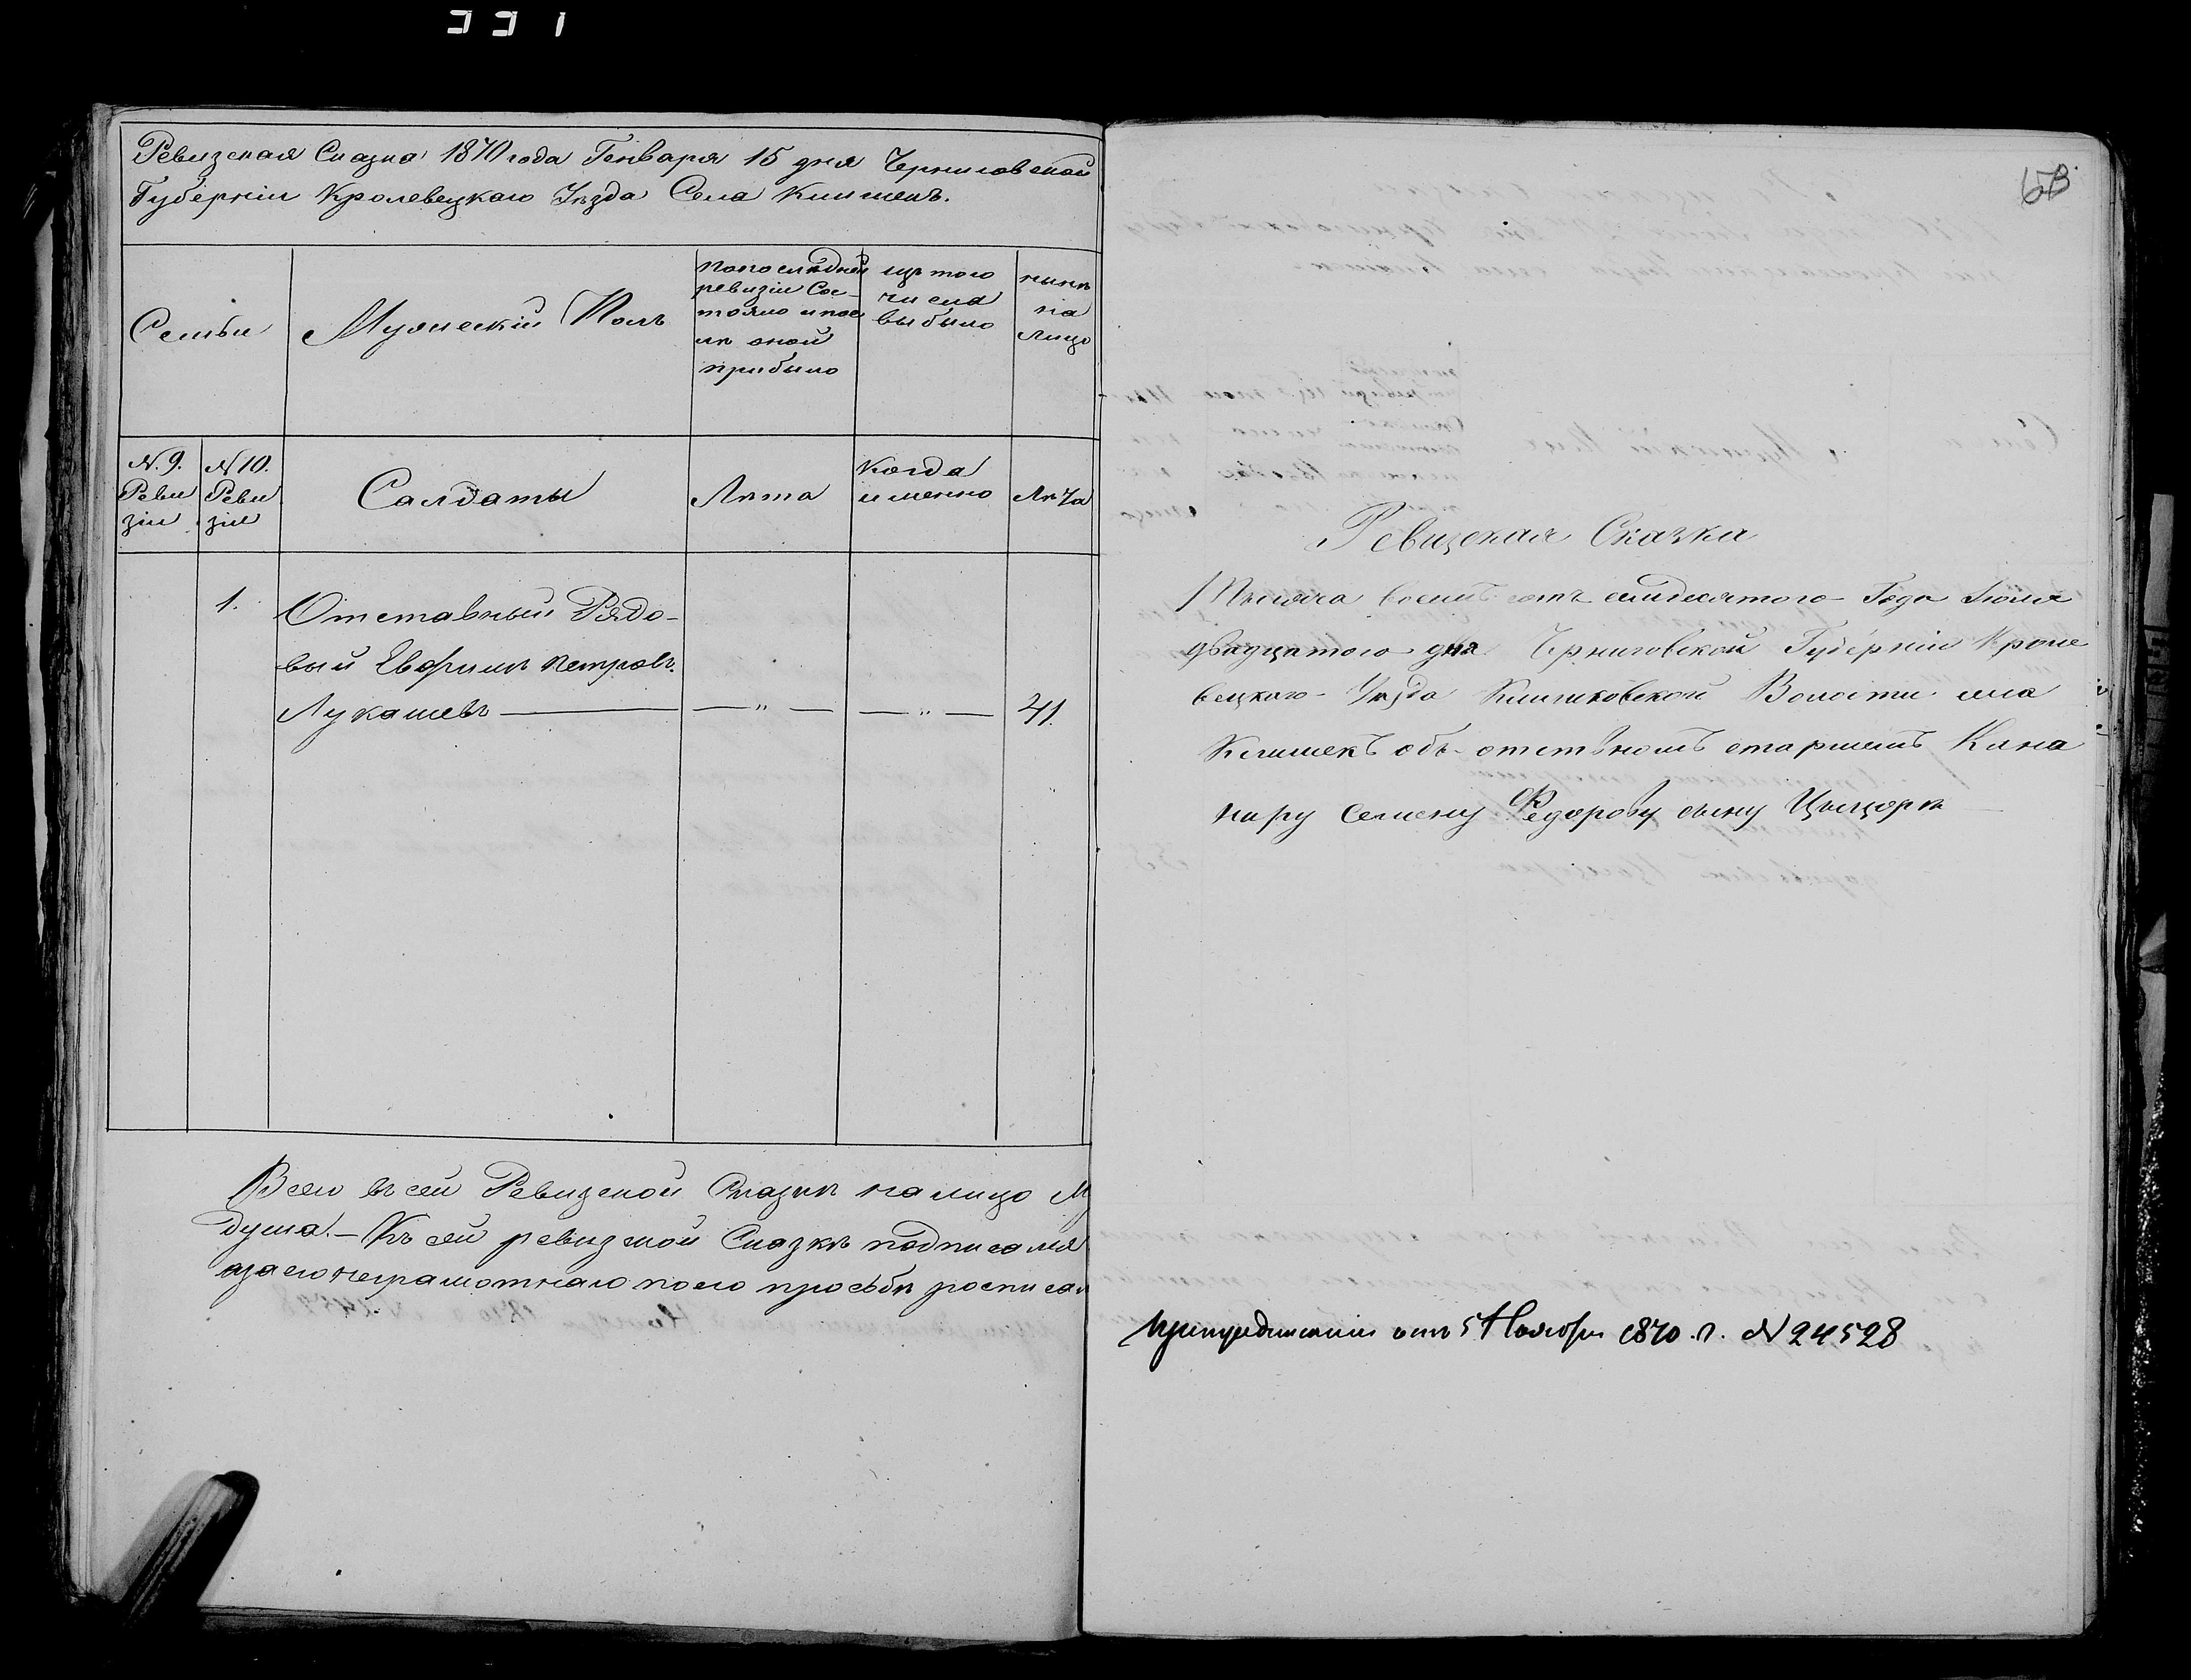 Ревизская Сказка 1870 года Генваря 15 дня Черниговской
Губерніи Кролевецкаго Уѣзда Села Клишекъ.
Семьи
Мужескій Полъ
по последней
ревизіи Сос-
тояло и посл
ѣ оной
прибыло
изъ того
числа
выбыло
нынѣ
на
лицо
N. 9.
Реви
зіи
N 10.
Реви
зіи
Салдаты
Лѣта
когда
именно
Лѣта
1.
Отставный Рядо-
вый Евфимъ Петровъ.
Лукашевъ — — " — — " — 41.
Всего въ сей Ревизской Сказкѣ на лицо М
душа. — Къ сей ревизской Сказкѣ подписался
а за его неграмотнаго по его просьбѣ росписал
63
Ревизская Сказка
Тысяча восемь сотъ семидесятого Года Іюля
двадцатого дня Черниговской Губерніи Кроле
вецкаго Уѣзда Клишковской Волости села
Клишекъ объ отставномъ старшемъ Кана
ниру Семену Федорову сыну Цыцоркѣ
при предписаніи отъ 5 Ноября 1870 г. N 24528